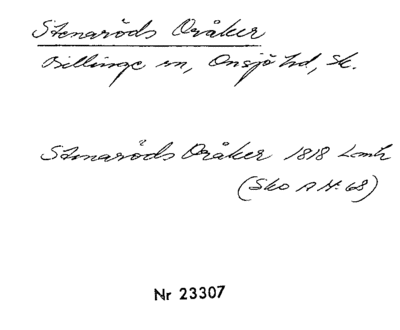 Stenaröds Oråker
Billinge sn, Onsjö hd, Sk.
Stenaröds Oråker 1818 Lmh
(Sko A H: 68)
Nr 23307